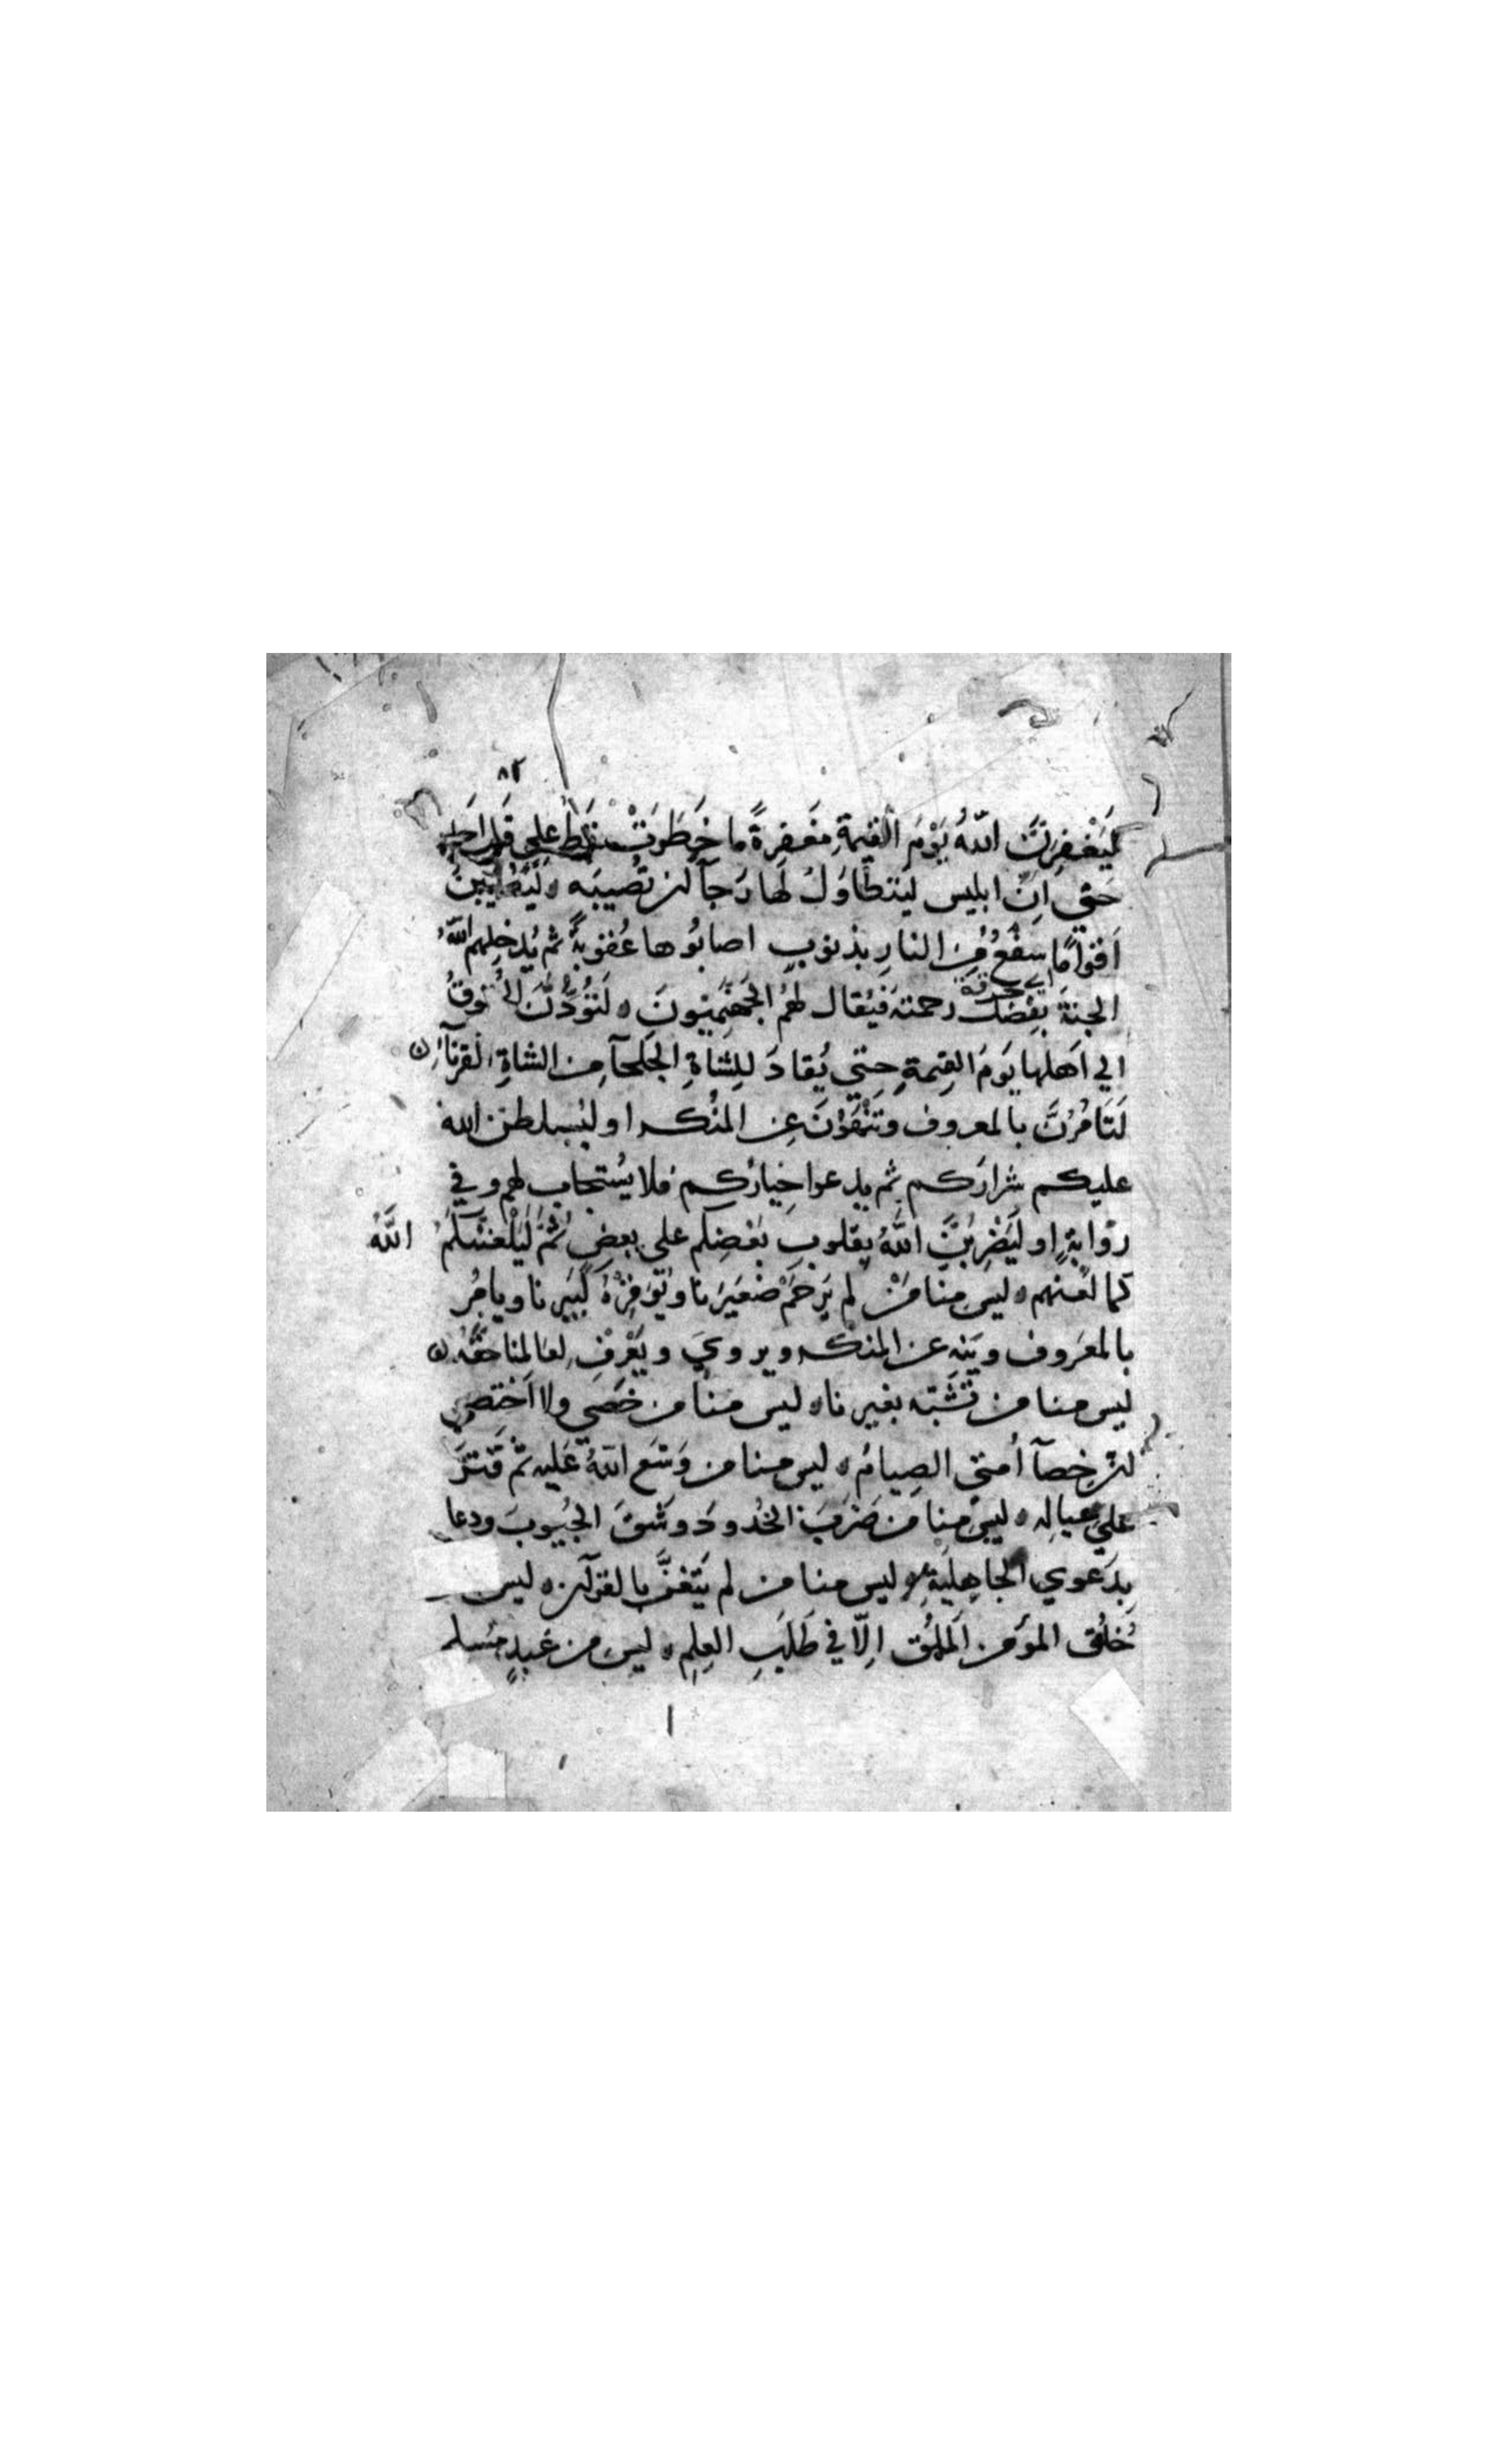 ٨٢
لَيَغْفِرَنَّ اللّٰهُ يَوْمَ القيمةِ مَغفِرةً ما خَطَرَتْ قَطُّ على قَلبِ احَدٍ
حَتي اِنّ ابليس ليَتَطَاوَلُ لَها رَجآ لن تُصيبَه ليُصِيبَنَّ
اَقوامًا سَفْعٌ مِنَ النارِ بذنوبٍ اصابُوها عُقوبةً ثم يُدخِلهم اللّٰهُ
اي حرقة
الجنةَ بِفَضل رحمته فيُقال لهُم الجَهَنَّمِيّونَ ه لَتُؤَدُّنَّ الحُقوقُ
الي اَهلها يَومَ القِيمةِ حتي يُقادَ للِشاةِ الجَلحآ من الشاةِ القَرنآءِ ن
لَتَامُرُنَّ بالمعروف وتَنْهَوُنَ عن المنكر او ليُسلطن الله
عليكم شرارَكم ثم يدعوا خِيارُكم فلا يُستجاب لهم وفي
رِوَايةٍ او لَيَضْرِبَنَّ اللّٰهُ بقلوبِ بَعْضِكم على بعضٍ ثُمَّ ليَلْعَنَنَّكُمُ اللّٰهُ
كما لعنهم ه ليس مِنا مَنْ لم يَرحَمْ صَغيرَنا ويُوَقِّرْ كَبِيَرنا ويامُر
بالمعَروف ويَنه عن المنكر ويروي ويَعْرِفْ لعَالمنا حَقَّهُ ن
ليس منا من تَشَبَّه بغيرنا ه ليس منا من خَصَي ولا اَختصي
لن خِصآ اُمتي الصِيامُ ه ليس منا من وَسَّع اللّٰهُ عَليه ثم قَتَّرَ
علي عيالِه ه ليس مِنا من ضَرَبَ الخُدودَ وشَقَّ الجُيوبَ ودعا
بِدَعوي الجاهِليَةِ ه ليس منا من لم يَتَغَنَّ بالقرآن ه ليس
خُلُق المؤمن المَلَق اِلّا في طَلَبِ العِلِم ه ليس من عَبدٍ مُسلم